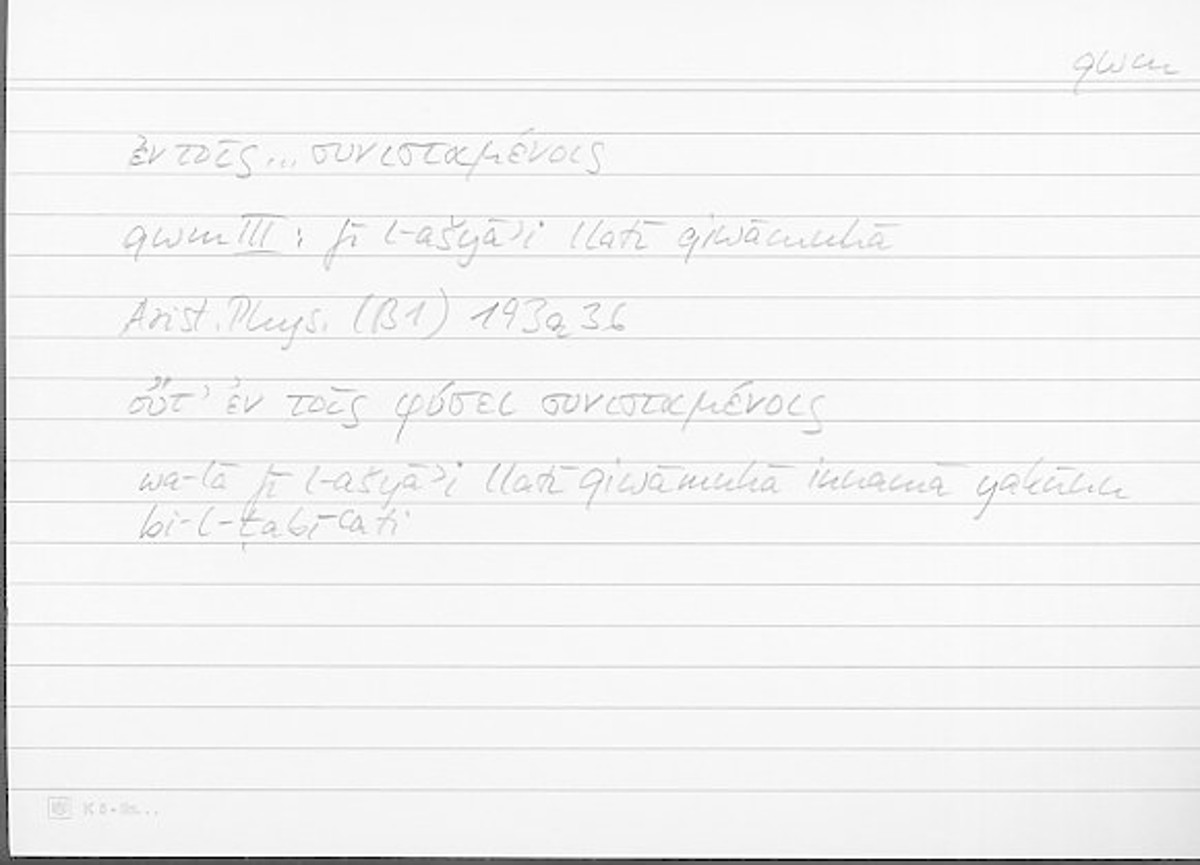 qwm
ἐν τοῖς... συνισταμένοις
qwm III: fī l-ašyāʾi llatī qiwāmuhā
Arist. Phys. (B1) 193a36
οὔτ' ἐν τοῖς φύσει συνισταμένοις
wa-lā fī l-ašyāʾi llatī qiwāmuhā innamā yakūnu
bi-l-ṭabīʿati